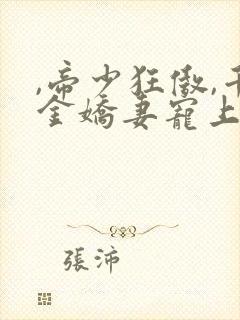 ,帝少狂傲,千
金嬌妻寵上
張沛